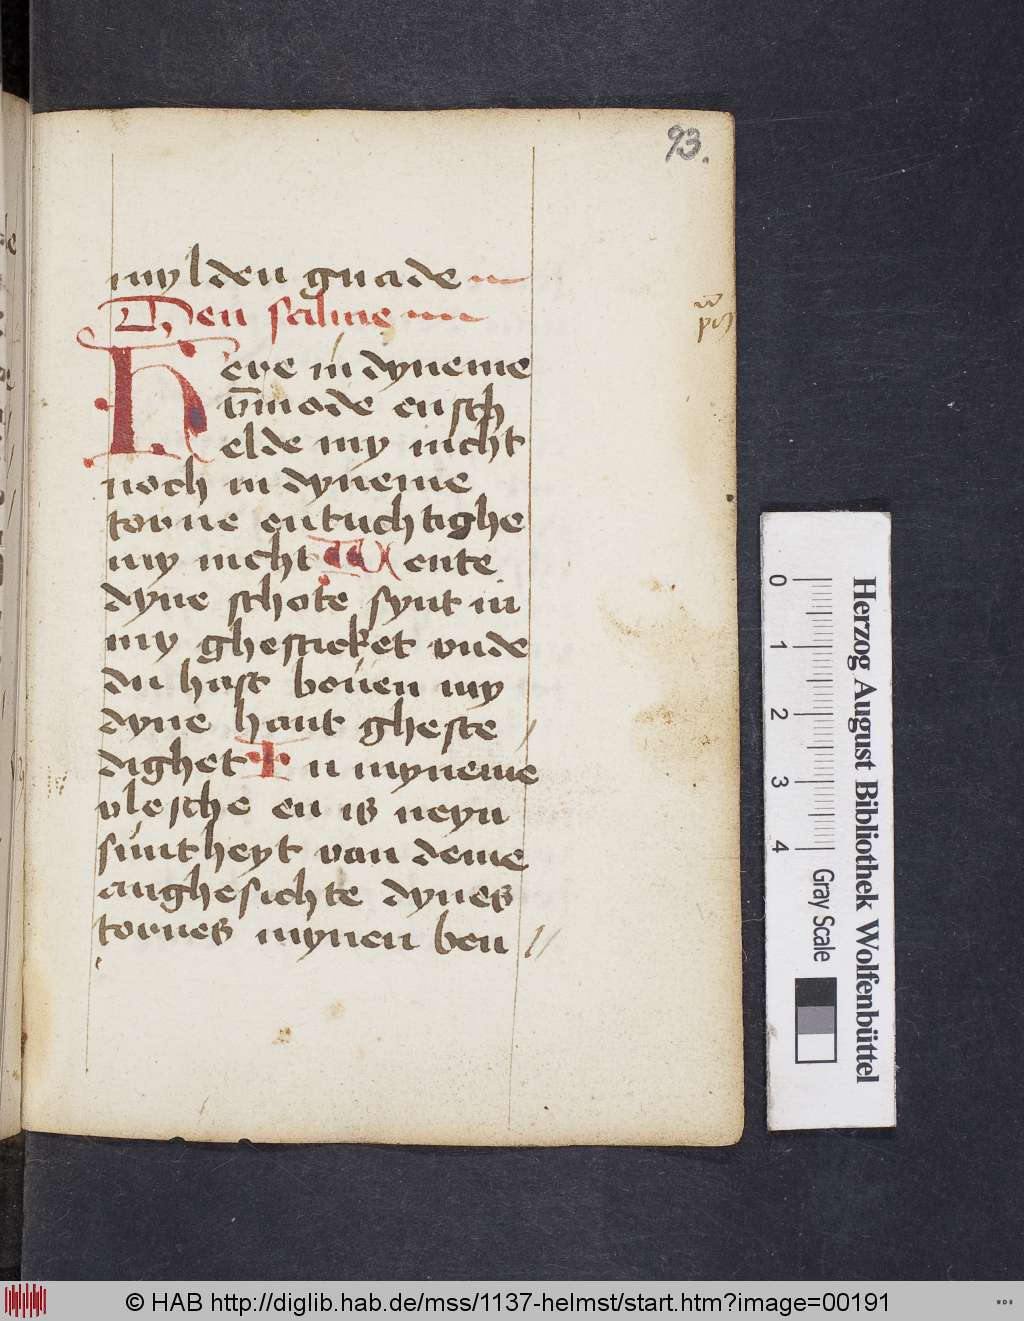 93.
mylden gnade
Den salme
Here in dyneme
v̄mode ensch
elde my nicht
noch in dyneme
torne entuchtighe
my nicht Wente
dyne schote synt in
my ghesticket vnde
du hast bouen my
dyne hant gheste
dighet In myneme
vlesche en is neyn
suntheyt van deme
anghesichte dynes
tornes mynen ben
Herzog August Bibliothek Wolfenbüttel
0 1 2 3 4 Gray Scale
© HAB http://diglib.hab.de/mss/1137-helmst/start.htm?image=00191